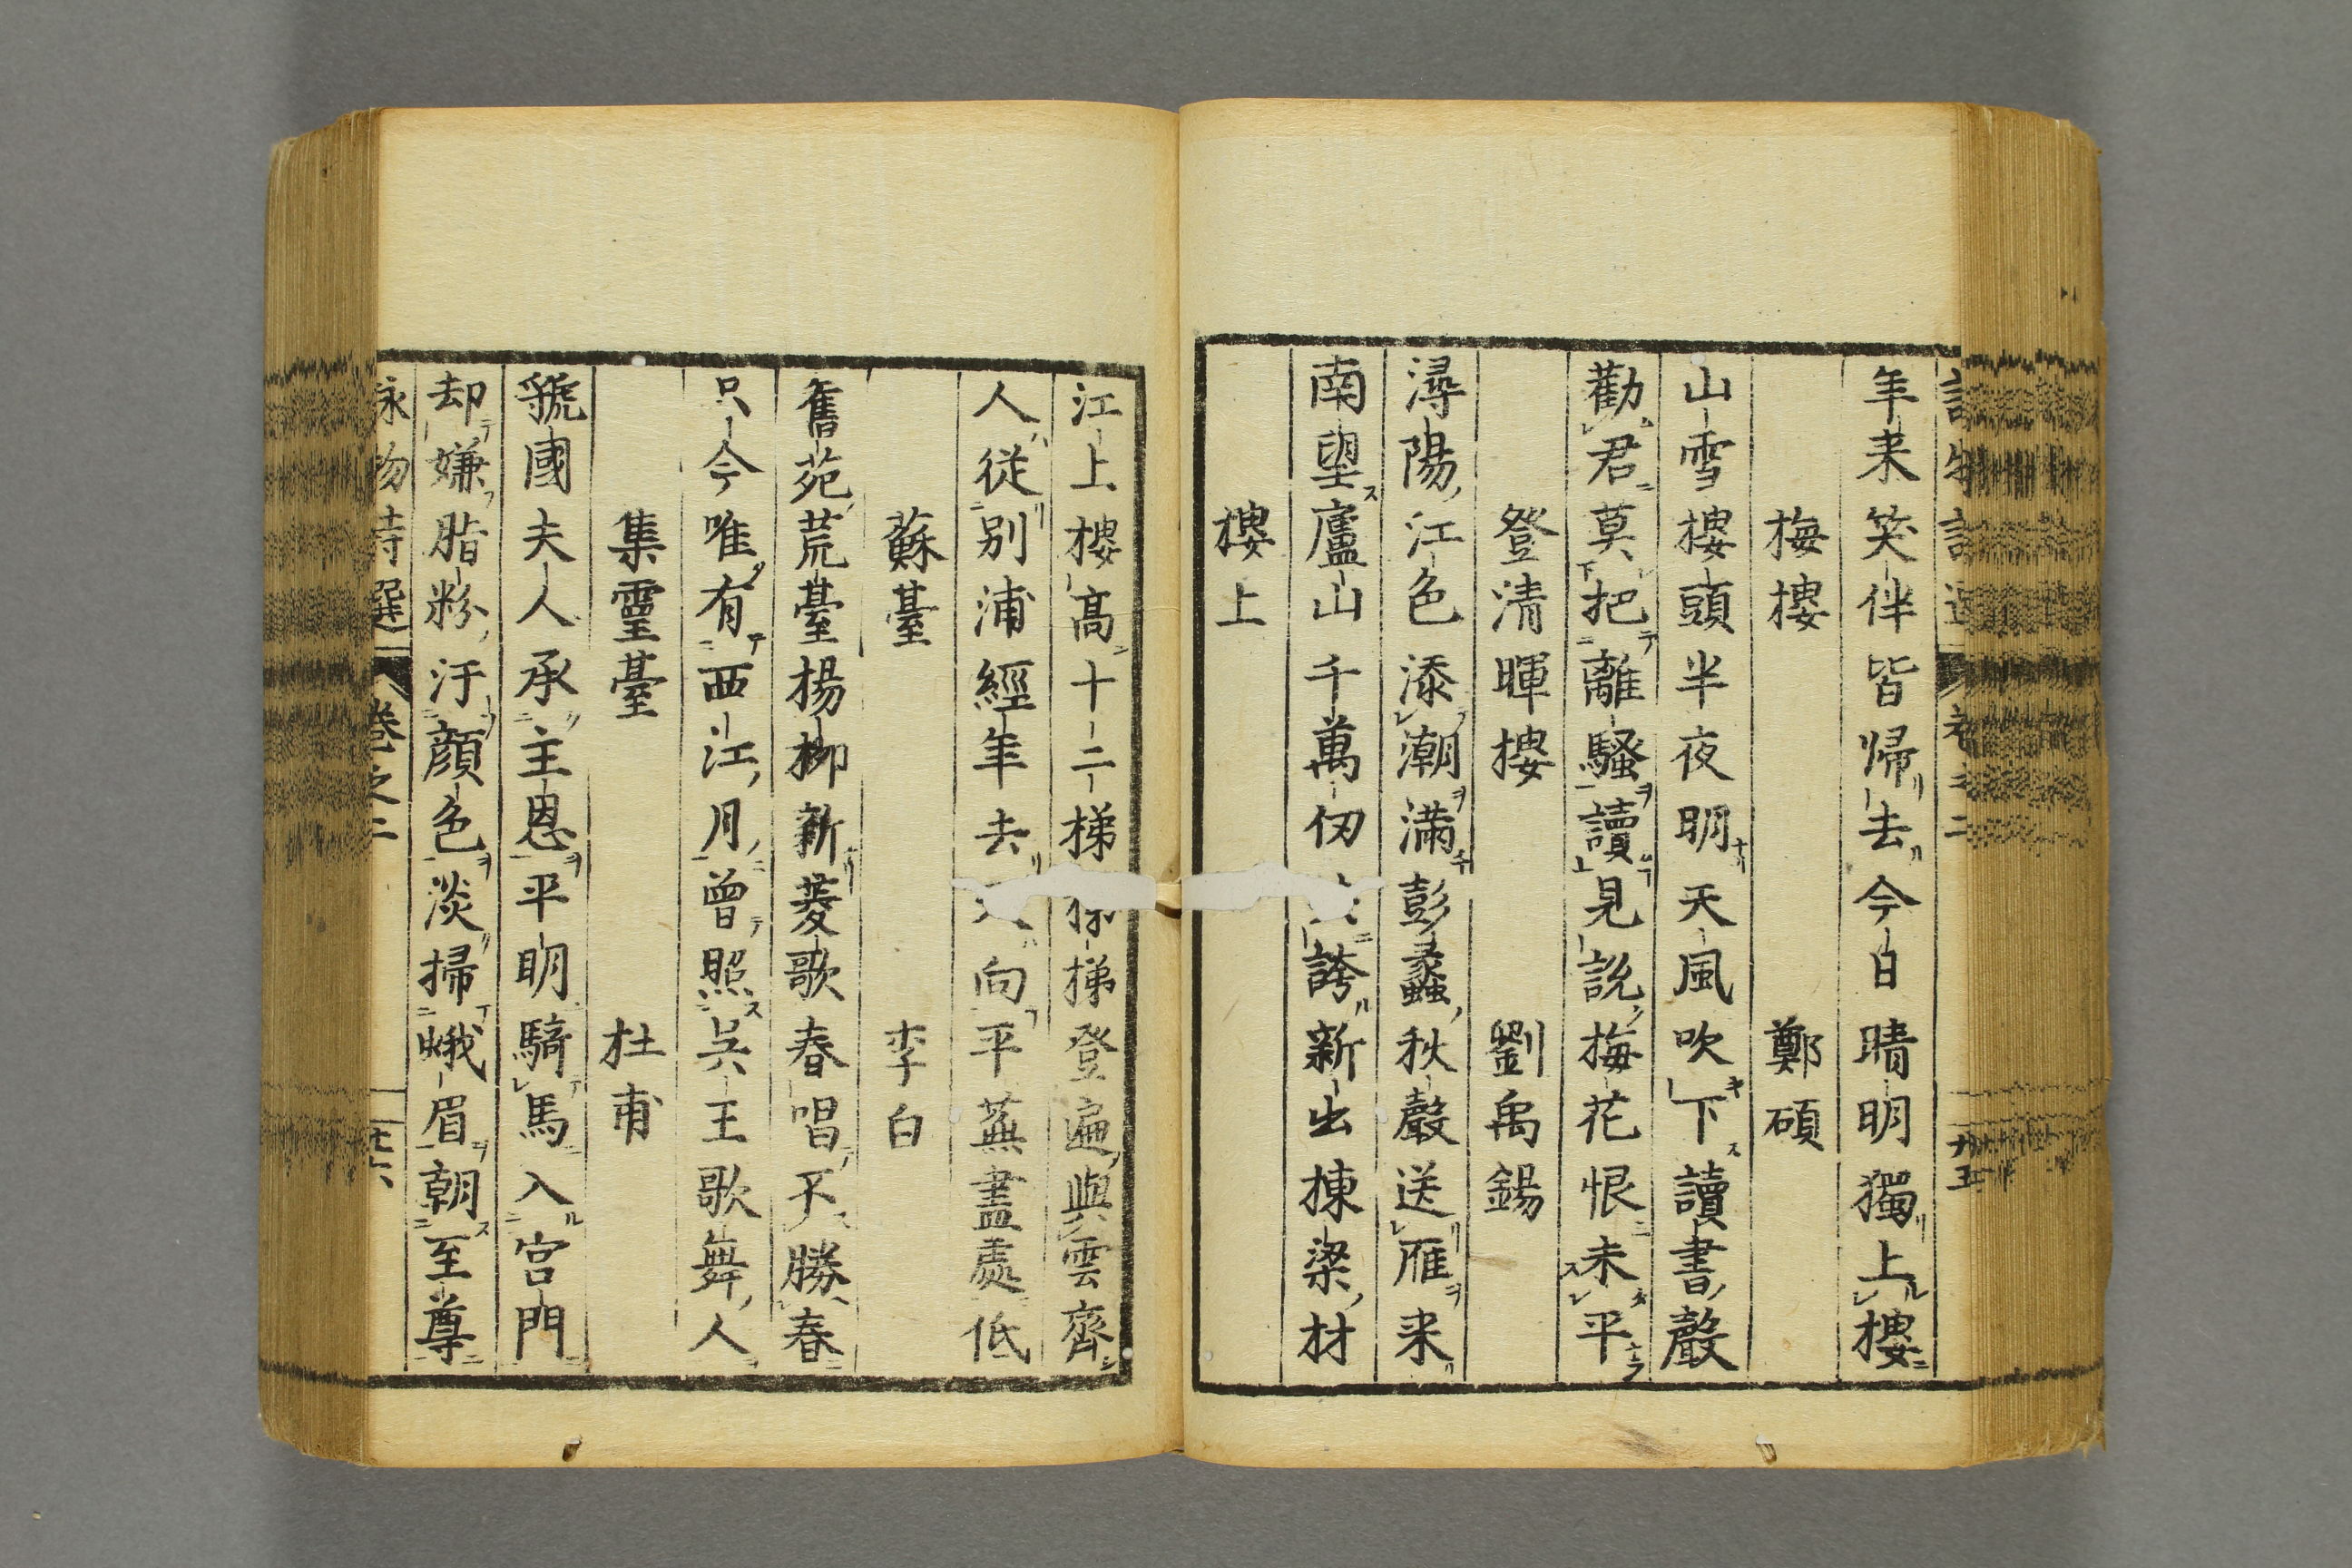 年来笑伴皆歸去今日晴明獨上樓
梅樓 鄭碩
山雪樓頭半夜明天風吹下讀書聲
勸君莫把離騷讀見說梅花恨未平
登清暉樓 劉禹錫
潯陽江色添潮滿彭蠡秋聲送雁来
南望廬山千萬仞誇新出揀梁材
樓上
江上樓高十二梯梯梯登遍與雲齊
人從別浦經年去向平蕪盡處低
蘇臺 李白
舊苑荒臺楊柳新菱歌春唱不勝春
只今唯有西江月曾照吳王歌舞人
集靈臺 杜甫
虢國夫人承主恩平明騎馬入宮門
却嫌脂粉汙顔色淡掃蛾眉朝至尊
詠物詩選 卷之二